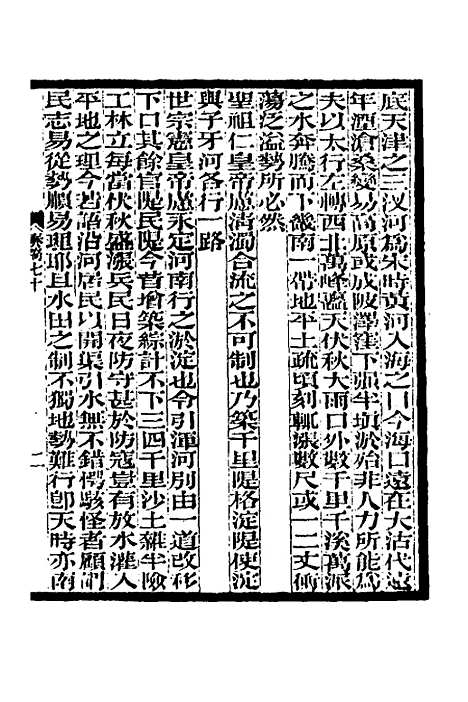 底天津之三汊河爲宋時黃河入海之口今海口遠在大沽代遠
年湮滄桑變易高原或成陂澤窪下强半填淤殆非人力所能爲
夫以太行左轉西北萬峰濫天伏秋大雨口外數千里千溪萬派
之水奔騰而下畿南一帶地平土疏頃刻輒漲數尺或一二丈衝
蕩泛溢勢所必然
聖祖仁皇帝慮清濁合流之不可制也乃築千里隄格淀隄使淀
與子牙河各行一路
世宗憲皇帝慮永定河南行之淤淀也令引渾河別由一道改移
下口其餘官隄民隄今昔增築綜計不下三四千里沙土雜半險
工林立每當伏秋盛漲兵民日夜防守甚於防寇豈有放水灌入
平地之理今若語沿河居民以開渠引水無不錯愕駭怪者顧
民志易從勢順易理耶且水田之制不獨地勢難行卽天時亦南
奏稿七十
二